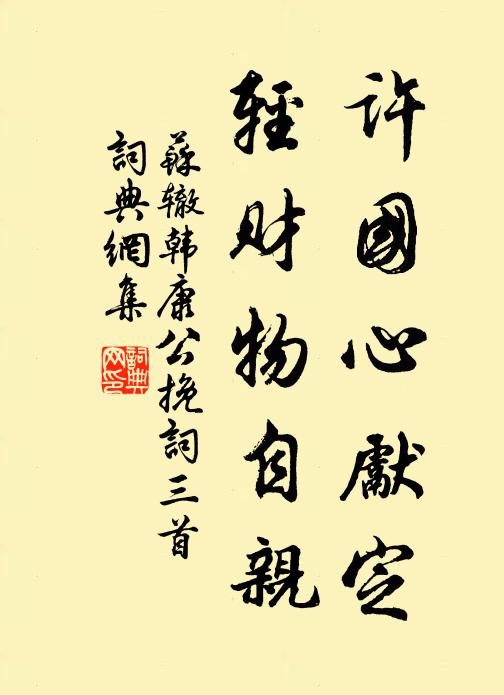 許國心獻定
輕財物自親
蘇辙韩康公挽詞三首
詞典網集
詞典网印